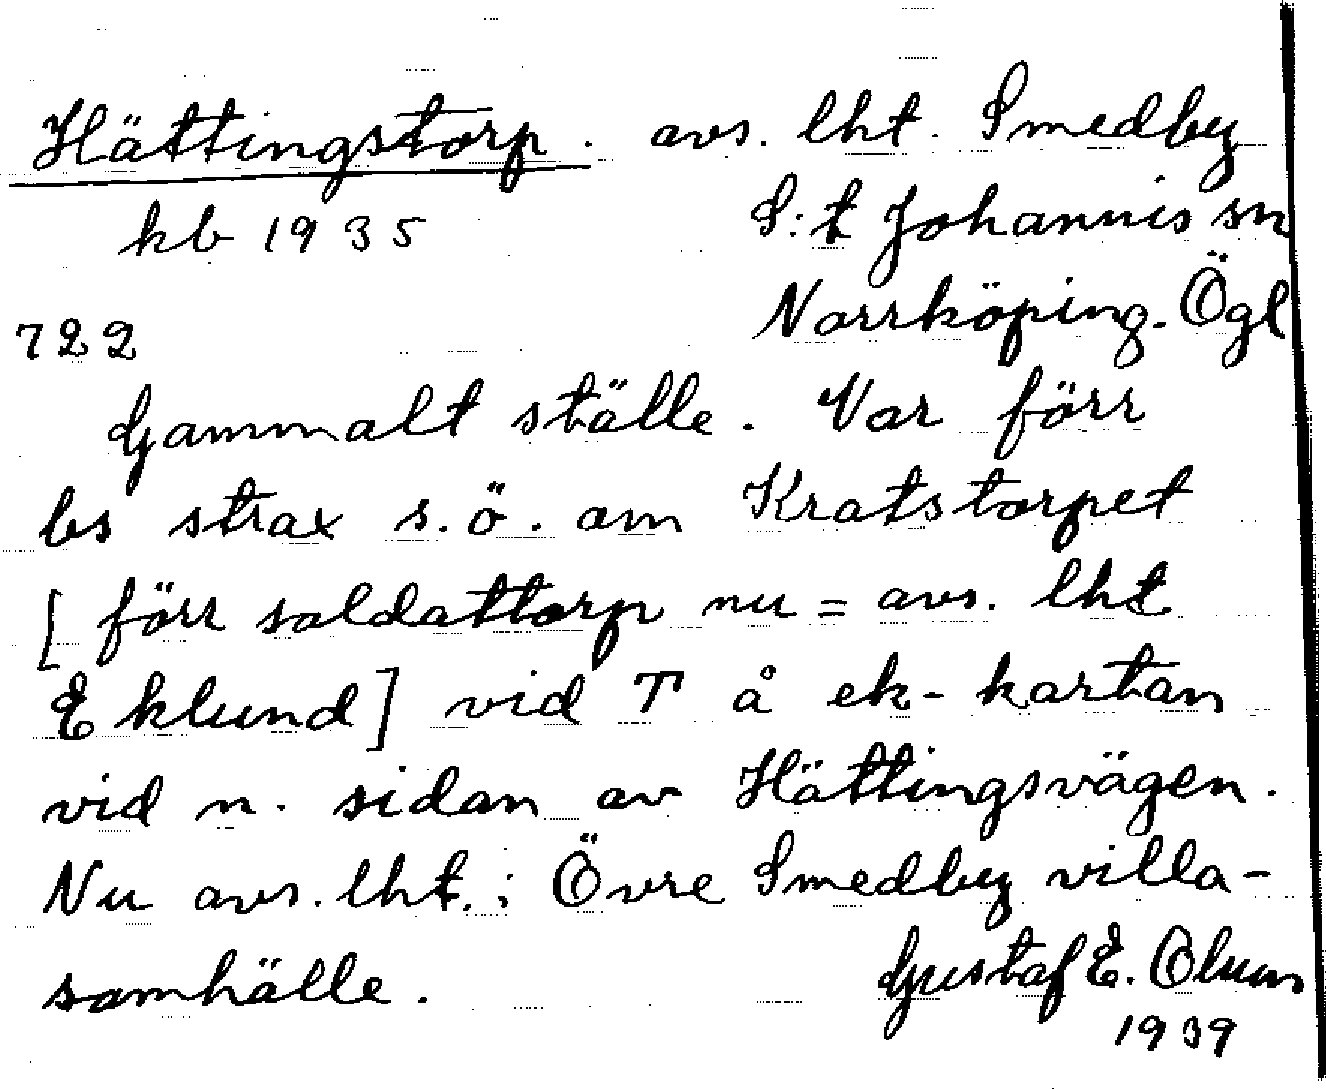 Hättingstorp. avs. lht. Smedby
kb 1935 S:t Johannis sn
Norrköping. Ögl
722
Gammalt ställe. Var förr
bs strax s.ö. om Kratstorpet
[förr soldattorp nu = avs. lht
Eklund] vid T å ek-kartan
vid n. sidan av Hättingsvägen.
Nu avs. lht. i Övre Smedby villa-
samhälle. Gustaf E. Olum
1939